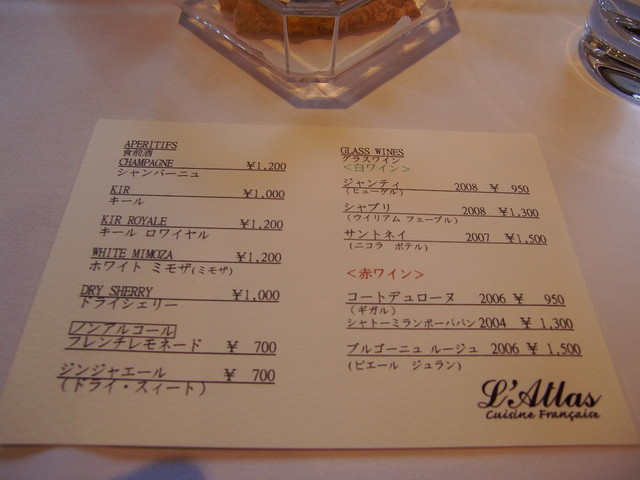 APERITIFS
食前酒
CHAMPAGNE ¥1,200
シャンパーニュ
KIR ¥1,000
キール
KIR ROYALE ¥1,200
キール ロワイヤル
WHITE MIMOZA ¥1,200
ホワイト ミモザ(ミモザ)
DRY SHERRY ¥1,000
ドライシェリー
ノンアルコール
フレンチレモネード ¥ 700
ジンジャエール ¥ 700
(ドライ・スィート)
GLASS WINES
グラスワイン
<白ワイン>
ジャンティ 2008 ¥ 950
(ヒューゲル)
シャブリ 2008 ¥1,300
(ウイリアム フェーブル)
サントネイ 2007 ¥1,500
(ニコラ ポテル)
<赤ワイン>
コートデュローヌ 2006 ¥ 950
(ギガル)
シャトーミランボーパパン 2004 ¥ 1,300
ブルゴーニュ ルージュ 2006 ¥ 1,500
(ピエール ジュラン)
L'Atlas
Cuisine Française